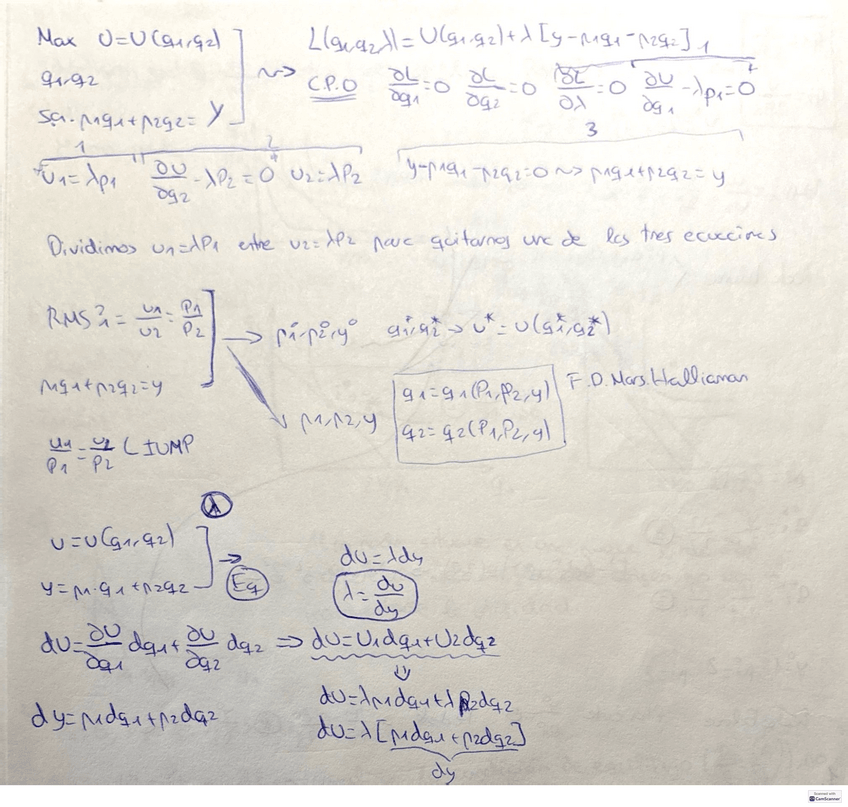 Max U=U(q1,q2)
q1,q2
s.a. p1q1+p2q2= y
L(q1,q2,λ)=U(q1,q2)+λ[y-p1q1-p2q2]
C.P.O ∂L/∂q1=0 ∂L/∂q2=0 ∂L/∂λ=0 ∂U/∂q1-λp1=0
1
1 2 3
U1=λp1 ∂U/∂q2-λP2=0 U2=λP2 y-p1q1-p2q2=0 ~> p1q1+p2q2=y
Dividimos U1=λP1 entre U2=λP2 para quitarnos una de las tres ecuaciones
RMS²₁= U1/U2=P1/P2
p1°,p2°,y° q1*,q2* → U*=U(q1*,q2*)
p1q1+p2q2=y
p1,p2,y
q1=q1(P1,P2,y)
q2=q2(P1,P2,y)
F.D.Mars.Halliaman
U1/P1=U2/P2 LIUMP
λ
U=U(q1,q2)
y=p1·q1+p2q2
→ Eq
dU=λdy
λ=dU/dy
dU=∂U/∂q1 dq1+∂U/∂q2 dq2 ⇒ dU=U1dq1+U2dq2
⇓
dy=p1dq1+p2dq2
dU=λp1dq1+λp2dq2
dU=λ[p1dq1+p2dq2]
dy
Scanned with
CamScanner